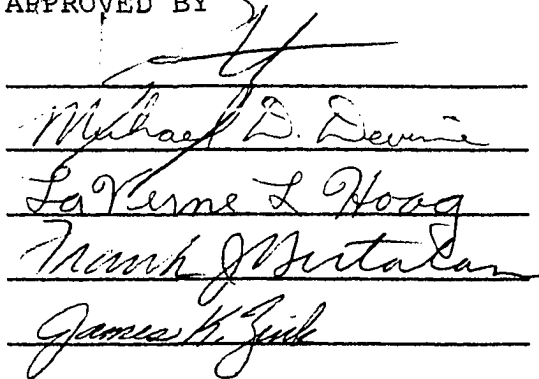 APPROVED BY
Michael D. Devine
LaVerne L Hoag
Frank J Bertalan
James K. Zink